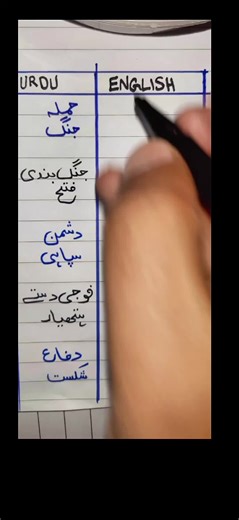 URDU ENGLISH
حملہ
جنگ
جنگ بندی
فتح
دشمن
سپاہی
فوجی دستے
ہتھیار
دفاع
شکست